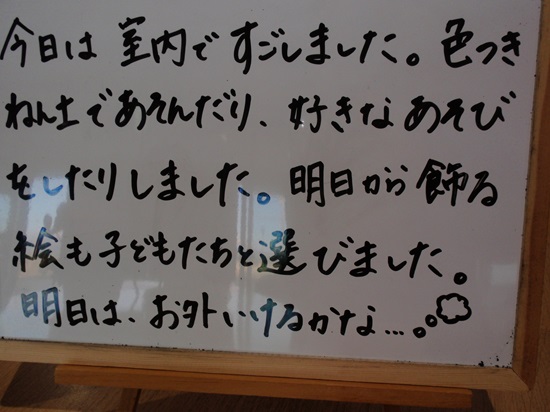 今日は室内ですごしました。色つき
ねん土であそんだり、好きなあそび
をしたりしました。明日から飾る
絵も子どもたちと選びました。
明日は、お外いけるかな...。